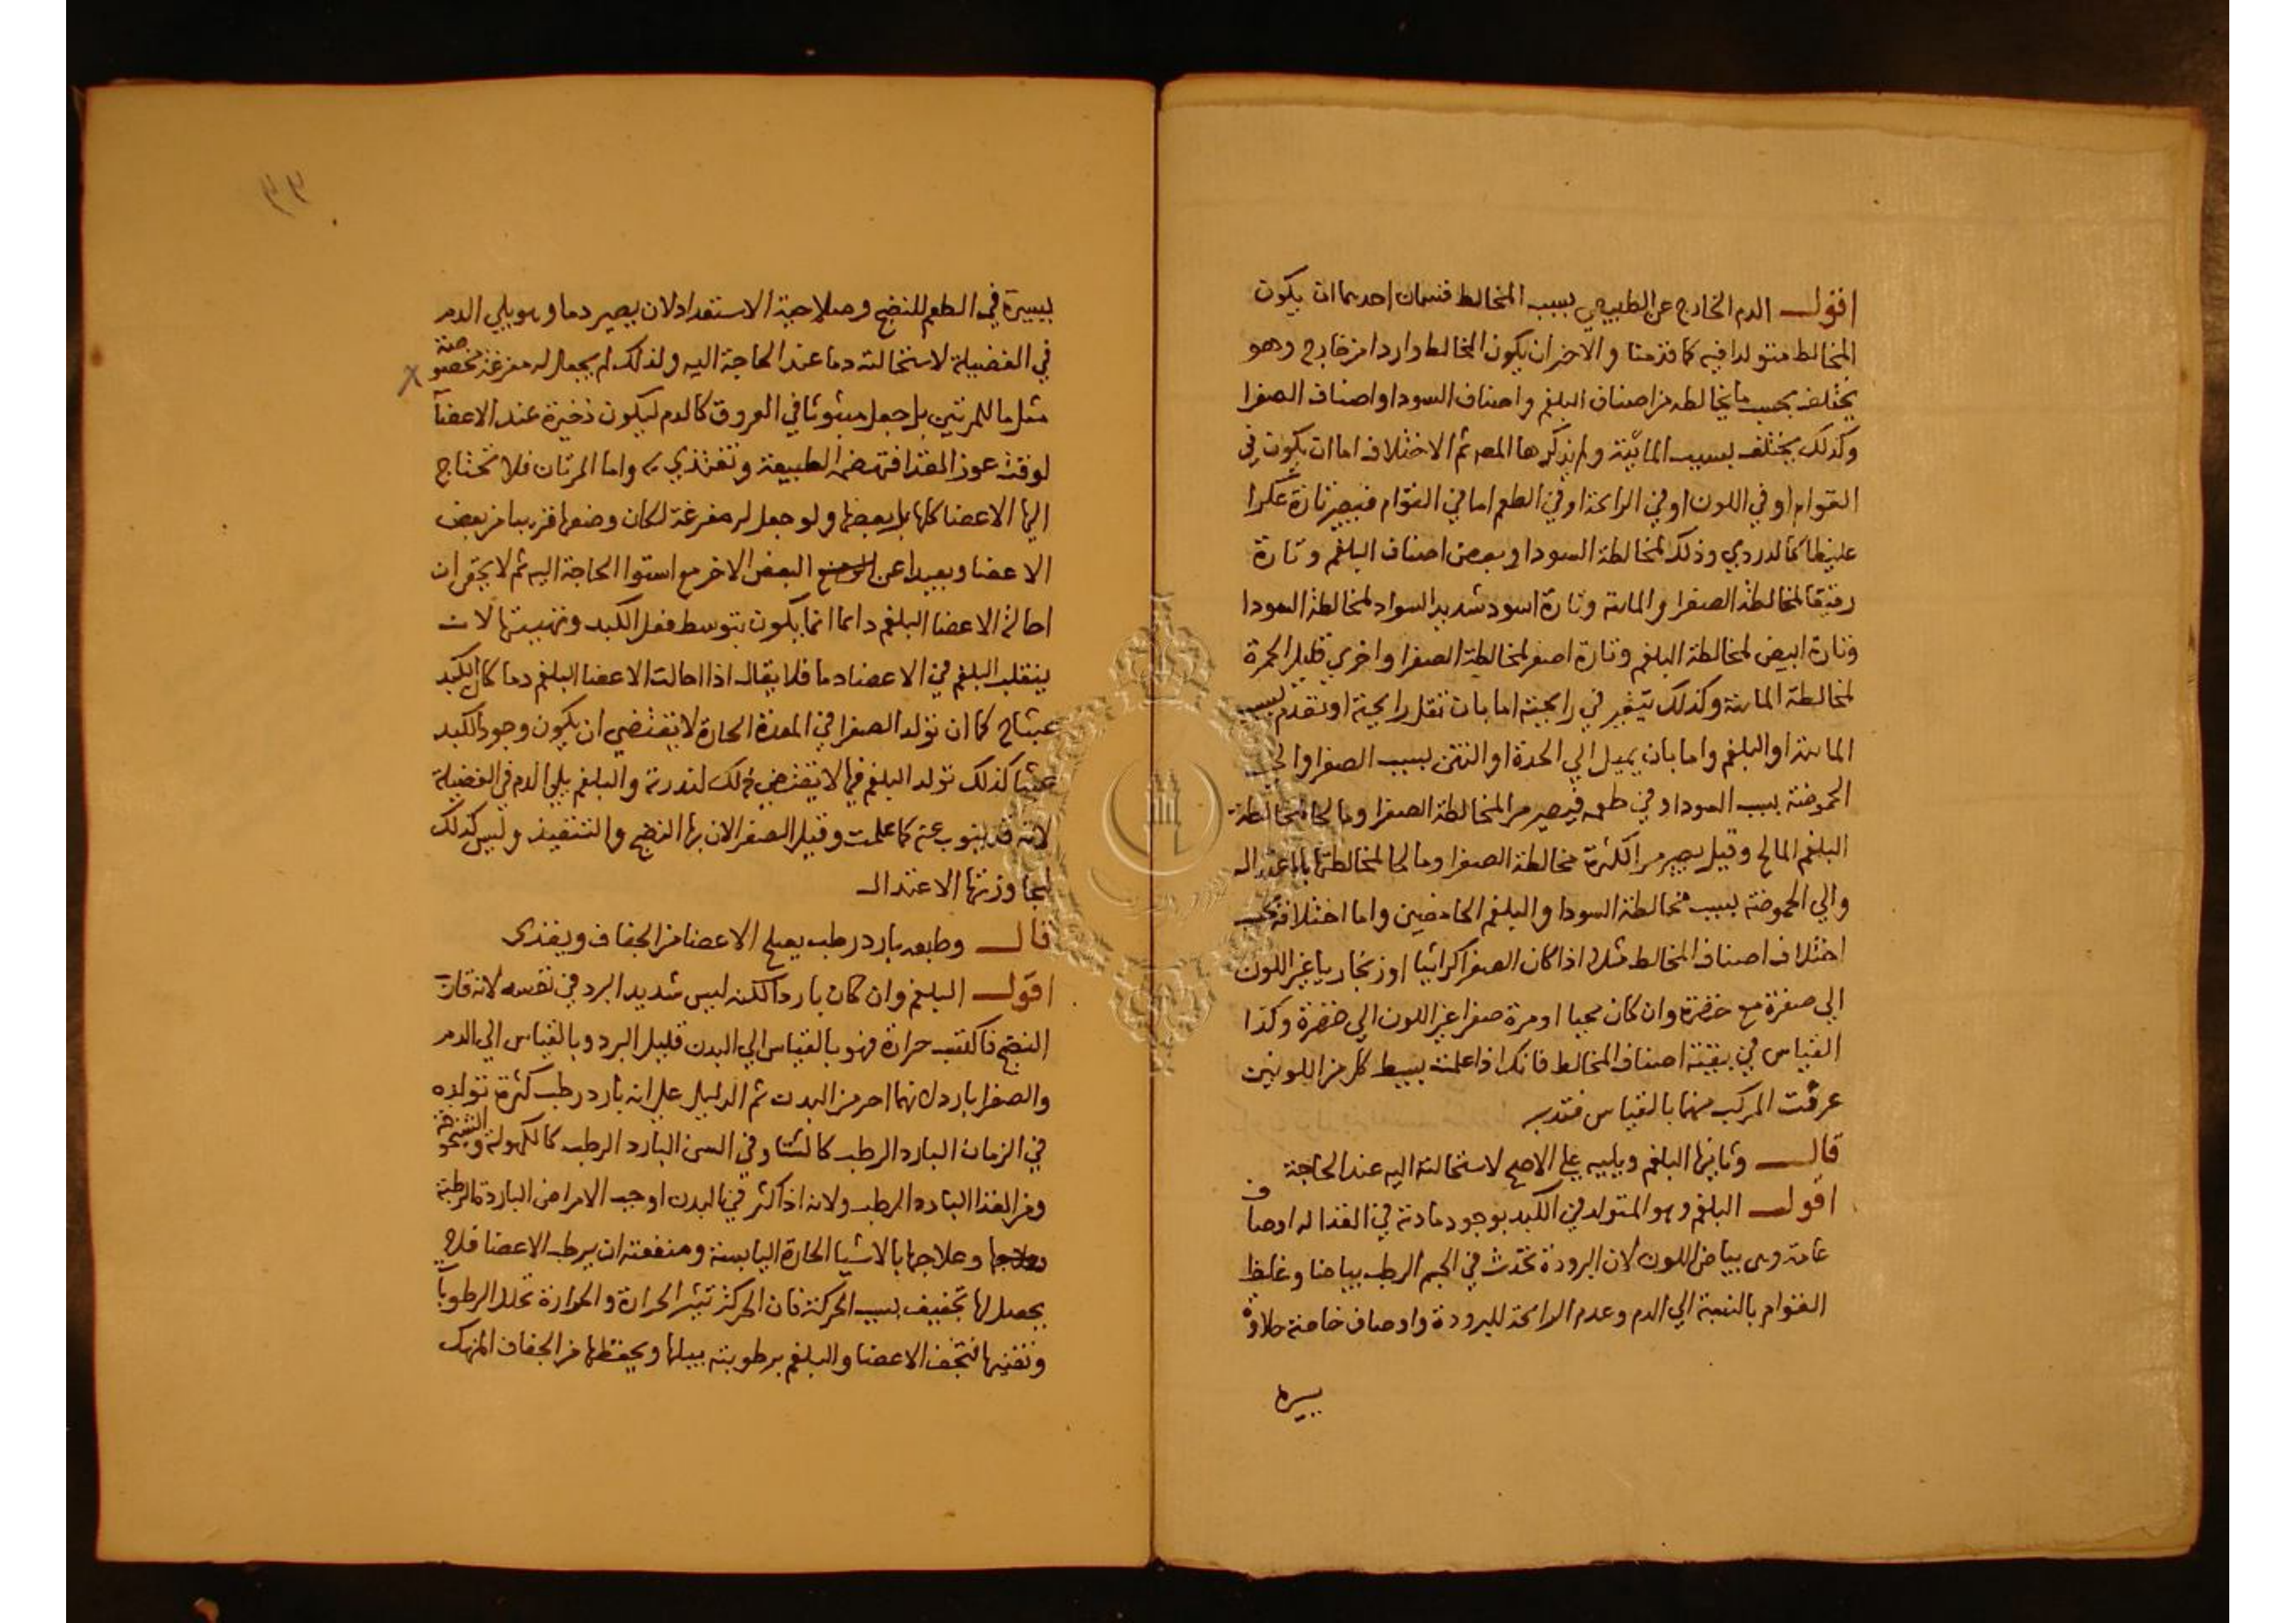 اقول الدم الخارج عن الطبيعي بسبب المخالط قسمان احدهما ان يكون
المخالط متولدا فيه كما قدمنا والاخر ان يكون المخالط واردا من خارج وهو
يختلف بحسب ما يخالطه من اصناف البلغم واصناف السودا واصناف الصفرا
وكذلك يختلف بسبب المائية ولم يذكرها المص ثم الاختلاف اما ان يكون في
القوام او في اللون او في الرائحة او في الطعم اما في القوام فيصير تارة عكرا
غليظا كالدردي وذلك لمخالطة السودا وبعض اصناف البلغم وتارة
رقيقا لمخالطة الصفرا والمائية وتارة اسود شديد السواد لمخالطة السودا
وتارة ابيض لمخالطة البلغم وتارة اصفر لمخالطة الصفرا واخري قليل الحمرة
لمخالطة المائية وكذلك يتغير في رايحته اما بان تقل رايحته او تعدم بسبب
المائية او البلغم واما بان يميل الي الحدة او النتن بسبب الصفرا والي
الحموضة بسبب السودا وفي طعمه فيصير مرا لمخالطة الصفرا ومالحا لمخالطة
البلغم المالح وقيل يصير مرا لكثرة مخالطة الصفرا ومالحا لمخالطتها باعتدال
والي الحموضة بسبب مخالطة السودا والبلغم الحامضين واما اختلافه بحسب
اختلاف اصناف المخالط مثلا اذا كان الصفرا كراثيا او زنجاريا غير اللون
الي صفرة مع خضرة وان كان محيا او مرة صفرا غير اللون الي خضرة وكذا
القياس في بقية اصناف المخالط فانك اذا علمت بسيط كل من اللونين
عرفت المركب منهما بالقياس فتدبر
قال وثانيها البلغم ويليه علي الاصح لاستحالته اليه عند الحاجة
اقول البلغم وهو المتولد في الكبد بوجود مادته في الغذا له اوصاف
عامة وهي بياض اللون لان البرودة تحدث في الجسم الرطب بياضا وغلظ
القوام بالنسبة الي الدم وعدم الرائحة للبرودة واوصاف خاصة حلاوة
يسيره
٣٣
يسيرة في الطعم للنضج وصلاحية الاستعداد لان يصير دما وهو يلي الدم
في الفضيلة لاستحالته دما عند الحاجة اليه ولذلك لم يجعل له مفرغة مخصوصة
مثل ما للمرتين بل جعل مبثوثا في العروق كالدم ليكون ذخيرة عند الاعضآ
لوقت عوز الغذا فتهضمه الطبيعة وتغتذي به واما المرتان فلا تحتاج
اليها الاعضا كلها بل بعضها ولو جعل له مفرغة لكان وضعها قريبا من بعض
الاعضا وبعيدا عن البعض الاخر مع استوا الحاجة اليه ثم لا يخفي ان
احالة الاعضا البلغم دائما انما يكون بتوسط فعل الكبد وتهيئتها لان
ينقلب البلغم في الاعضا دما فلا يقال اذا احالت الاعضا البلغم دما كان الكبد
عبثا كما ان تولد الصفرا في المعدة الحارة لا يقتضي ان يكون وجود الكبد
عبثا كذلك تولد البلغم فيها لا يقتضي ذلك لندرته والبلغم يلي الدم في الفضيلة
لانه قد ينوب عنه كما علمت وقيل الصفرا لان بها النضج والتنفيذ وليس كذلك
لمجاوزتها الاعتدال
قال وطبعه بارد رطب يصلح الاعضا من الجفاف ويغذي
اقول البلغم وان كان باردا لكنه ليس شديد البرد في نفسه لانه قارن
النضج فاكتسب حرارة فهو بالقياس الي البدن قليل البرد وبالقياس الي الدم
والصفرا بارد لانهما احر من البدن ثم الدليل علي انه بارد رطب كثرة تولده
في الزمان البارد الرطب كالشتا وفي السن البارد الرطب كالكهولة والشيخوخة
ومن الغذا البارد الرطب ولانه اذا كثر في البدن اوجب الامراض الباردة الرطبة
وعلاجها بالاشيا الحارة اليابسة ومنفعته ان يرطب الاعضا فلا
يحصل لها تجفيف بسبب الحركة فان الحركة تثير الحرارة والحرارة تحلل الرطوبا
وتفنيها فتجف الاعضا والبلغم برطوبته يبلها ويحفظها من الجفاف المنهك